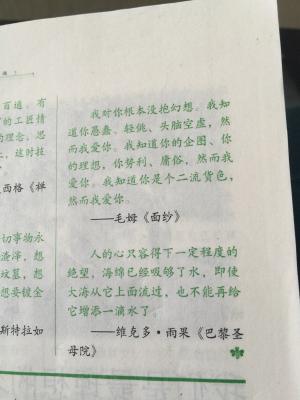 百通。有
的工匠情
的理念，思
上，这时技
西格《禅
切事物永
渣滓，想
坟墓，想
想要镀金
斯特拉如
我对你根本没抱幻想。我知
道你愚蠢、轻佻、头脑空虚，然
而我爱你。我知道你的企图、你
的理想，你势利、庸俗，然而我
爱你。我知道你是个二流货色，
然而我爱你。
——毛姆《面纱》
人的心只容得下一定程度的
绝望，海绵已经吸够了水，即使
大海从它上面流过，也不能再给
它增添一滴水了。
——维克多·雨果《巴黎圣
母院》